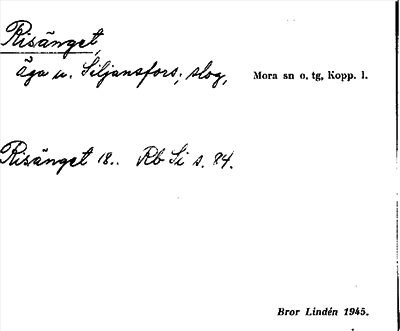 Risänget,
äga u. Siljansfors; slog, Mora sn o. tg, Kopp. l.
Risänget 18.. Rb Si s. 84.
Bror Lindén 1945.